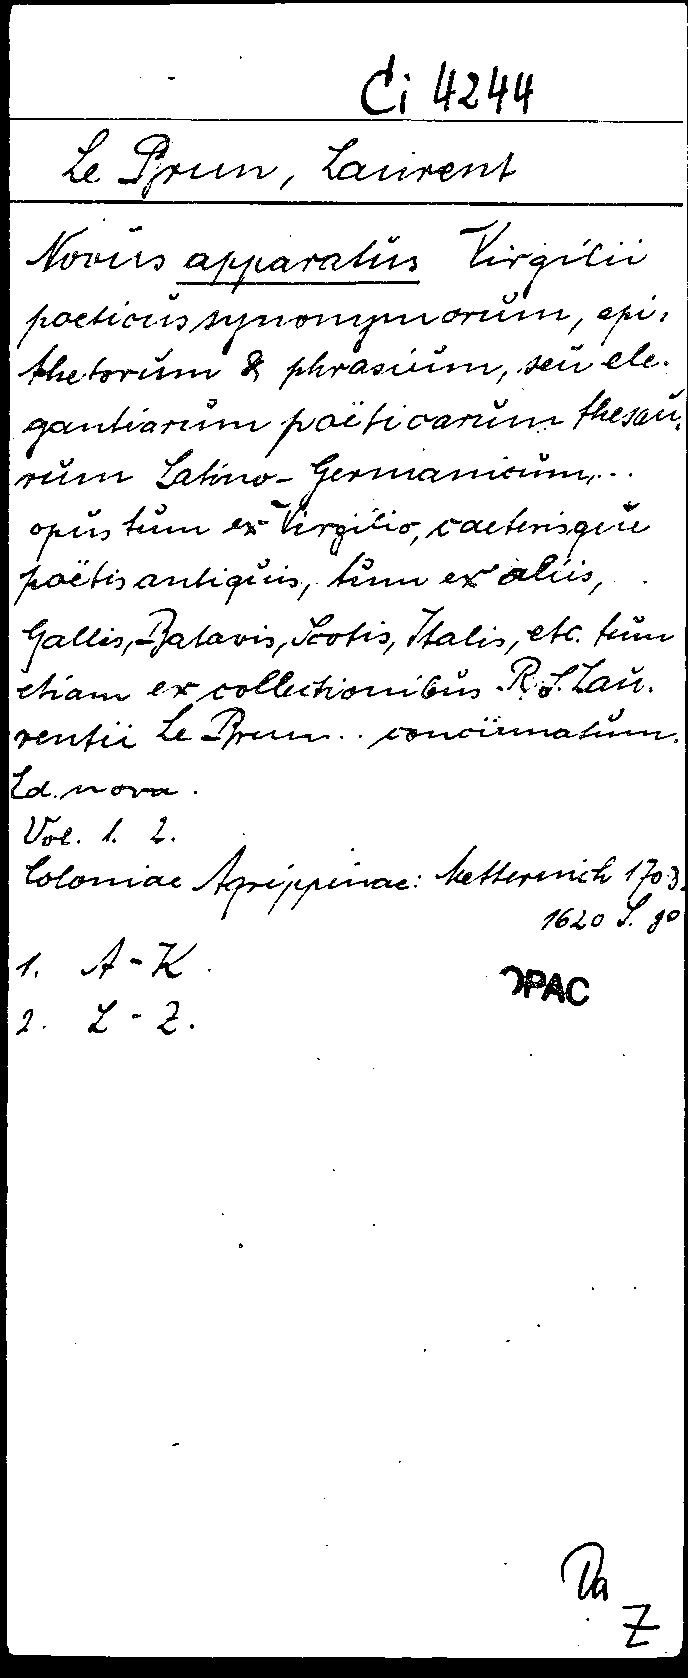 Ci 4244
Le Brun, Laurent
Novus apparatus Virgilii
poeticus synonymorum, epi-
thetorum & phrasium, seu ele-
gantiarum poëticarum thesau-
rum Latino-Germanicum,...
opus tum ex Virgilio, caeterisque
poëtis antiquis, tum ex aliis,
Gallis, Batavis, Scotis, Italis, etc. tum
etiam ex collectionibus R. P. Lau-
rentii Le Brun .. concinnatum.
Ed. nova.
Vol. 1. 2.
Coloniae Agrippinae: Metternich 1703.
1620 S. 8°
1. A - K.
2. L - Z.
OPAC
Da
Z